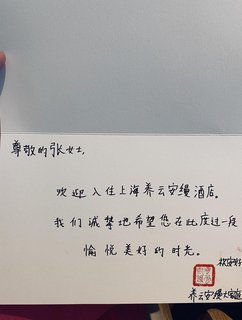 尊敬的张女士，
欢迎入住上海养云安缦酒店。
我们诚挚地希望您在此度过一段
愉悦美好的时光。
养云安缦大家庭